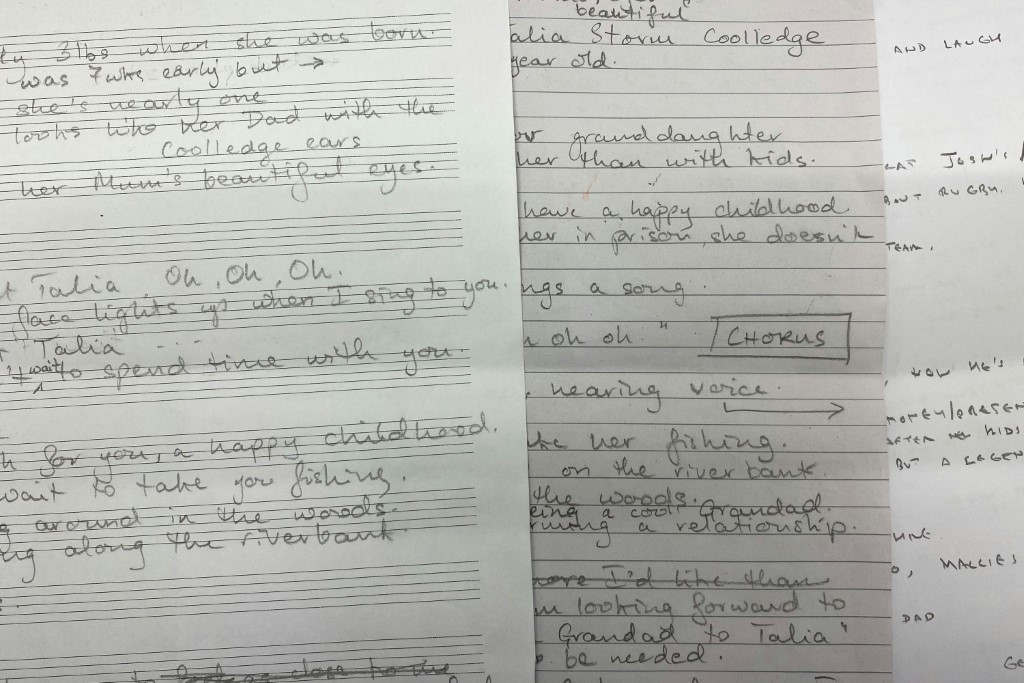 3lbs when she was born.
was 7wks early but →
she's nearly one
looks like her Dad with the
Coolledge ears
her Mum's beautiful eyes.
Talia Oh, Oh, Oh.
face lights up when I sing to you.
Talia
wait to spend time with you.
for you, a happy childhood.
wait to take you fishing.
around in the woods.
along the riverbank.
close to the
beautiful
alia Storm Coolledge
year old.
granddaughter
her than with kids.
have a happy childhood
her in prison, she doesn't
ngs a song.
oh oh"
CHORUS
nearing voice.
her fishing.
on the river bank.
the woods.
eing a cool Grandad.
a relationship.
more I'd like than
looking forward to
Grandad to Talia"
be needed.
AND LAUGH
JOSH'S
RUGBY.
TEAM.
NOW HE'S
MONEY/PRESEN
AFTER KIDS
BUT A LEGEN
MALLIES
DAD